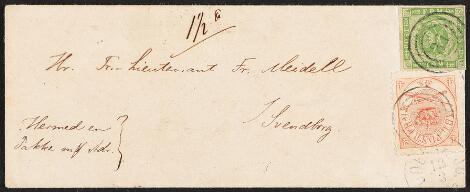 1½ ℔
Hr. Pr. Lieutenant Fr. Meidell
Svendborg
Hermed en
Pakke mrk Adr.